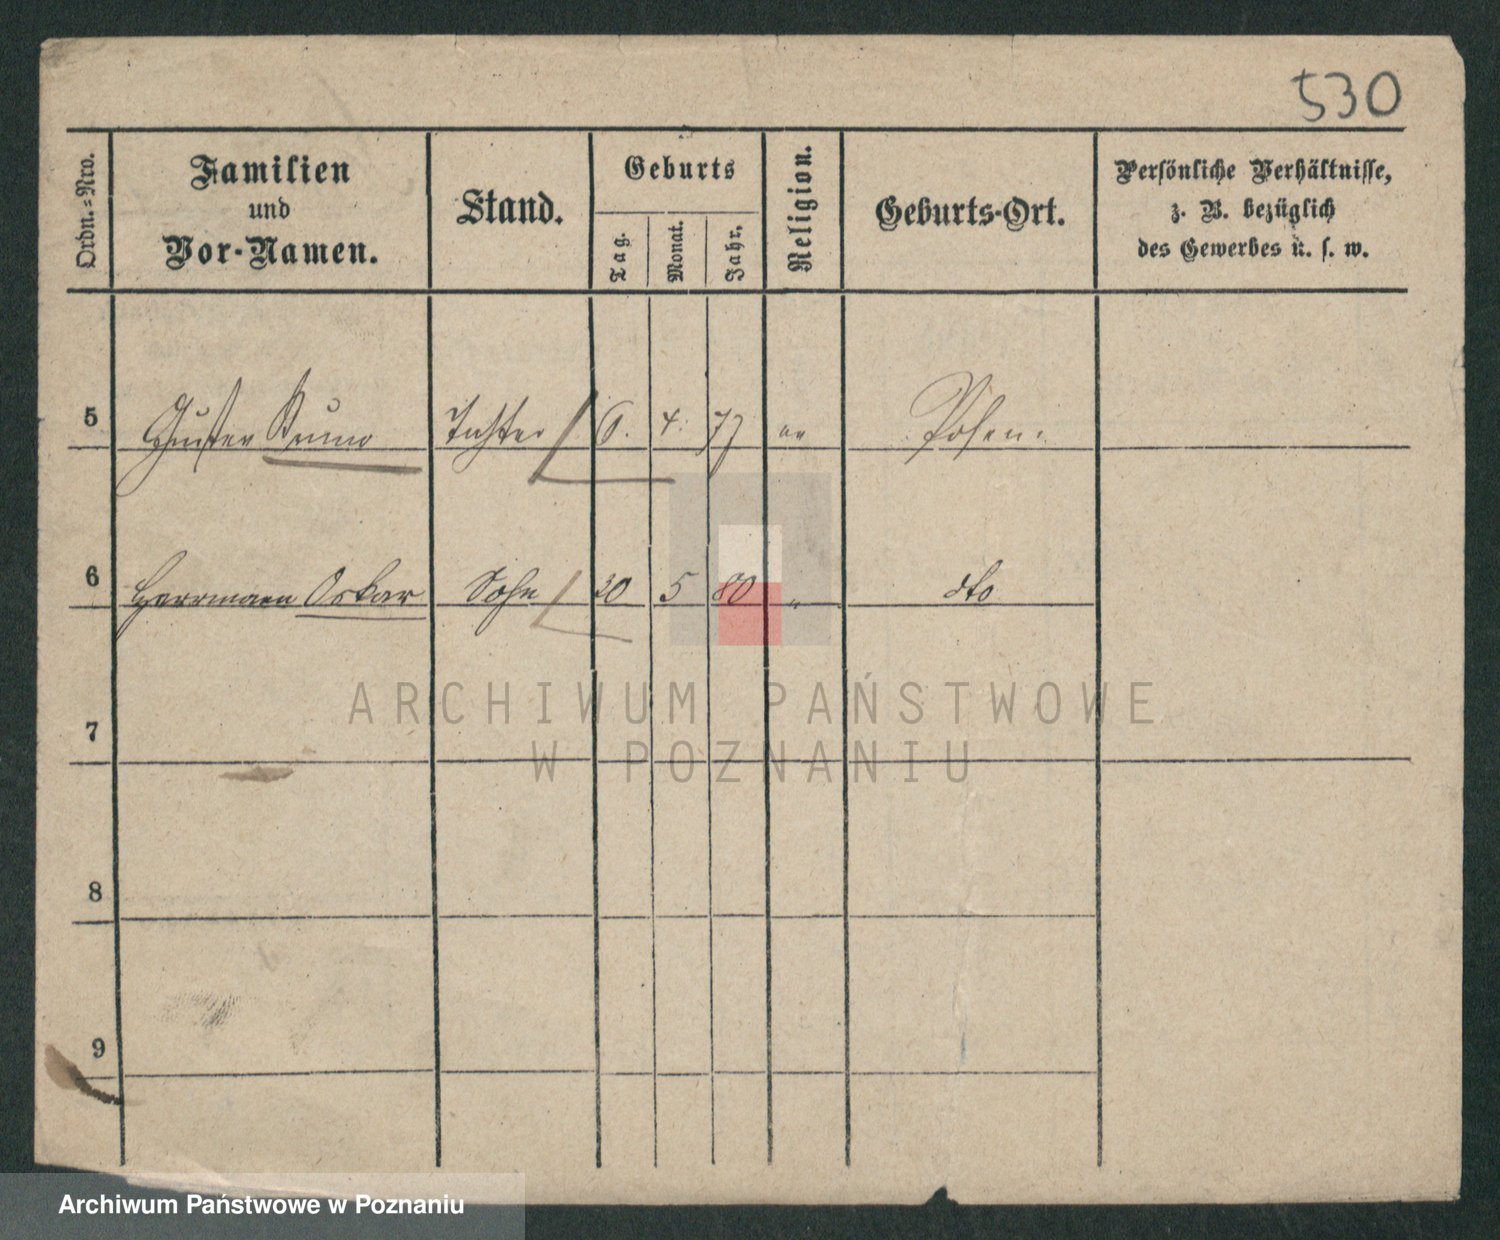 530
Ordn.=Nro.
Familien
und
Vor-Namen.
Stand.
Geburts
Tag.
Monat.
Jahr.
Religion.
Geburts-Ort.
Persönliche Verhältnisse,
z. B. bezüglich
des Gewerbes u. s. w.
5 Bruno Tochter 6. 4. 77 Posen.
6 Herrmann Oskar Sohn 30 5 80 " dto
7
8
9
ARCHIWUM PAŃSTWOWE
W POZNANIU
Archiwum Państwowe w Poznaniu